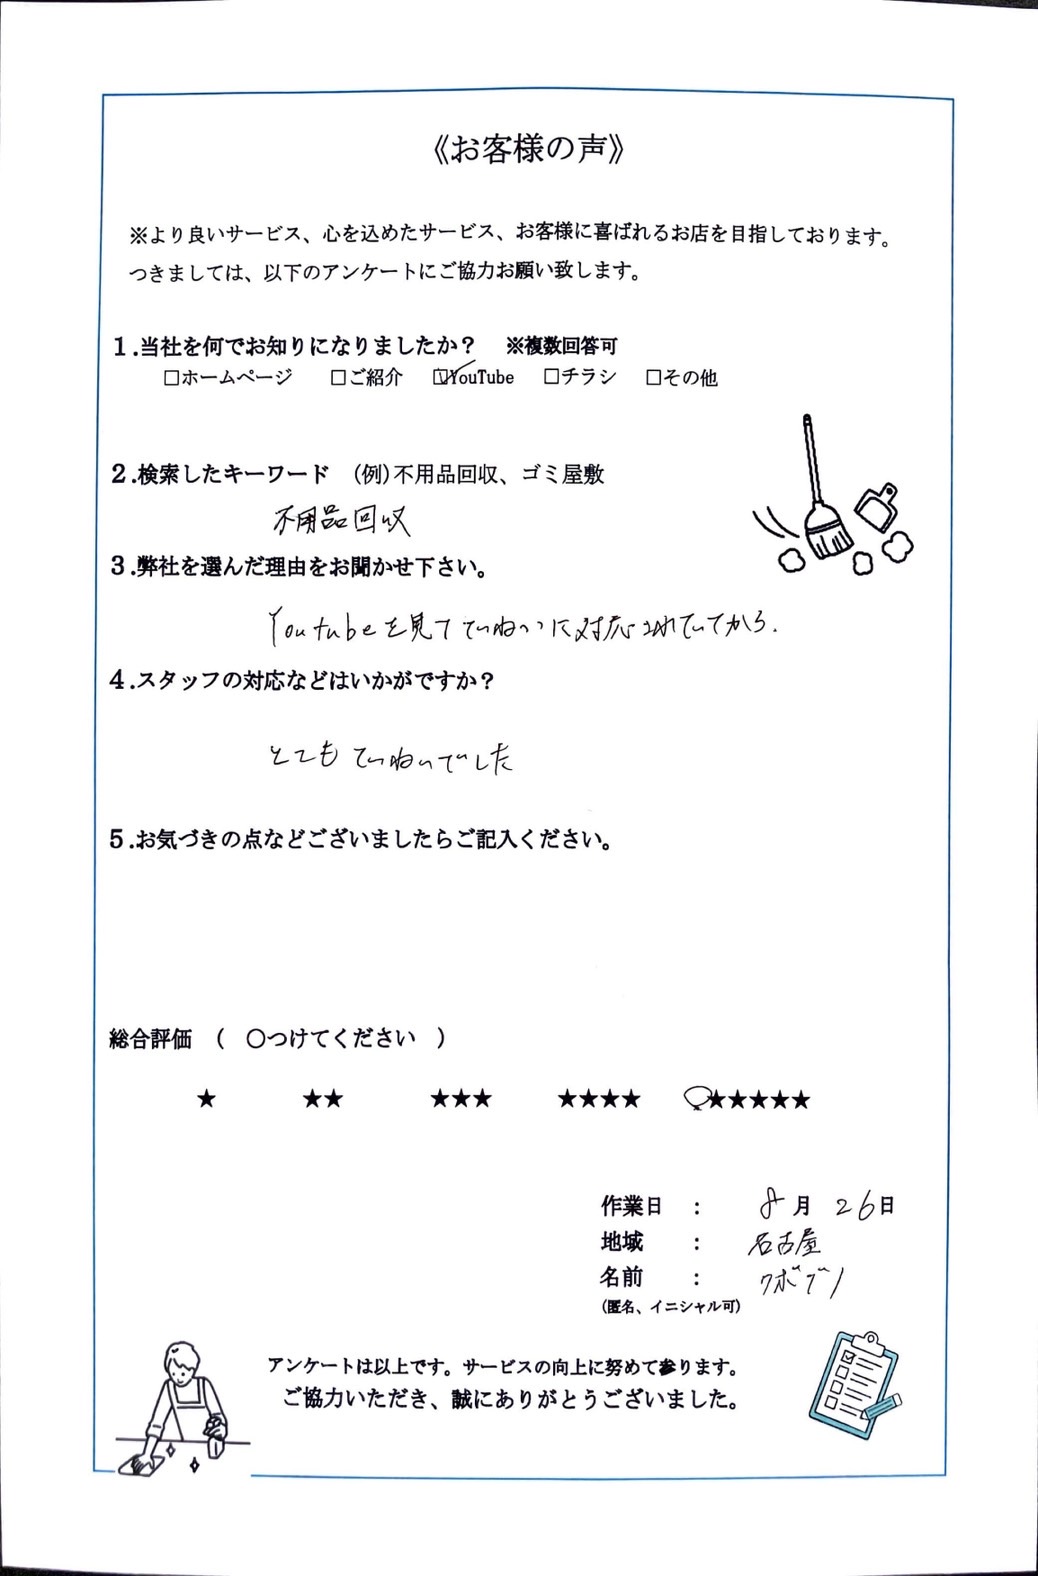 《お客様の声》
※より良いサービス、心を込めたサービス、お客様に喜ばれるお店を目指しております。
つきましては、以下のアンケートにご協力お願い致します。
1.当社を何でお知りになりましたか？ ※複数回答可
□ホームページ □ご紹介 ☑YouTube □チラシ □その他
2.検索したキーワード (例)不用品回収、ゴミ屋敷
不用品回収
3.弊社を選んだ理由をお聞かせ下さい。
Youtubeを見てていねいに対応されていてから.
4.スタッフの対応などはいかがですか？
とてもていねいでした
5.お気づきの点などございましたらご記入ください。
総合評価 ( ○つけてください )
★ ★★ ★★★ ★★★★ ○★★★★★
作業日 : 8月 26日
地域 : 名古屋
名前 :
(匿名、イニシャル可)
アンケートは以上です。サービスの向上に努めて参ります。
ご協力いただき、誠にありがとうございました。